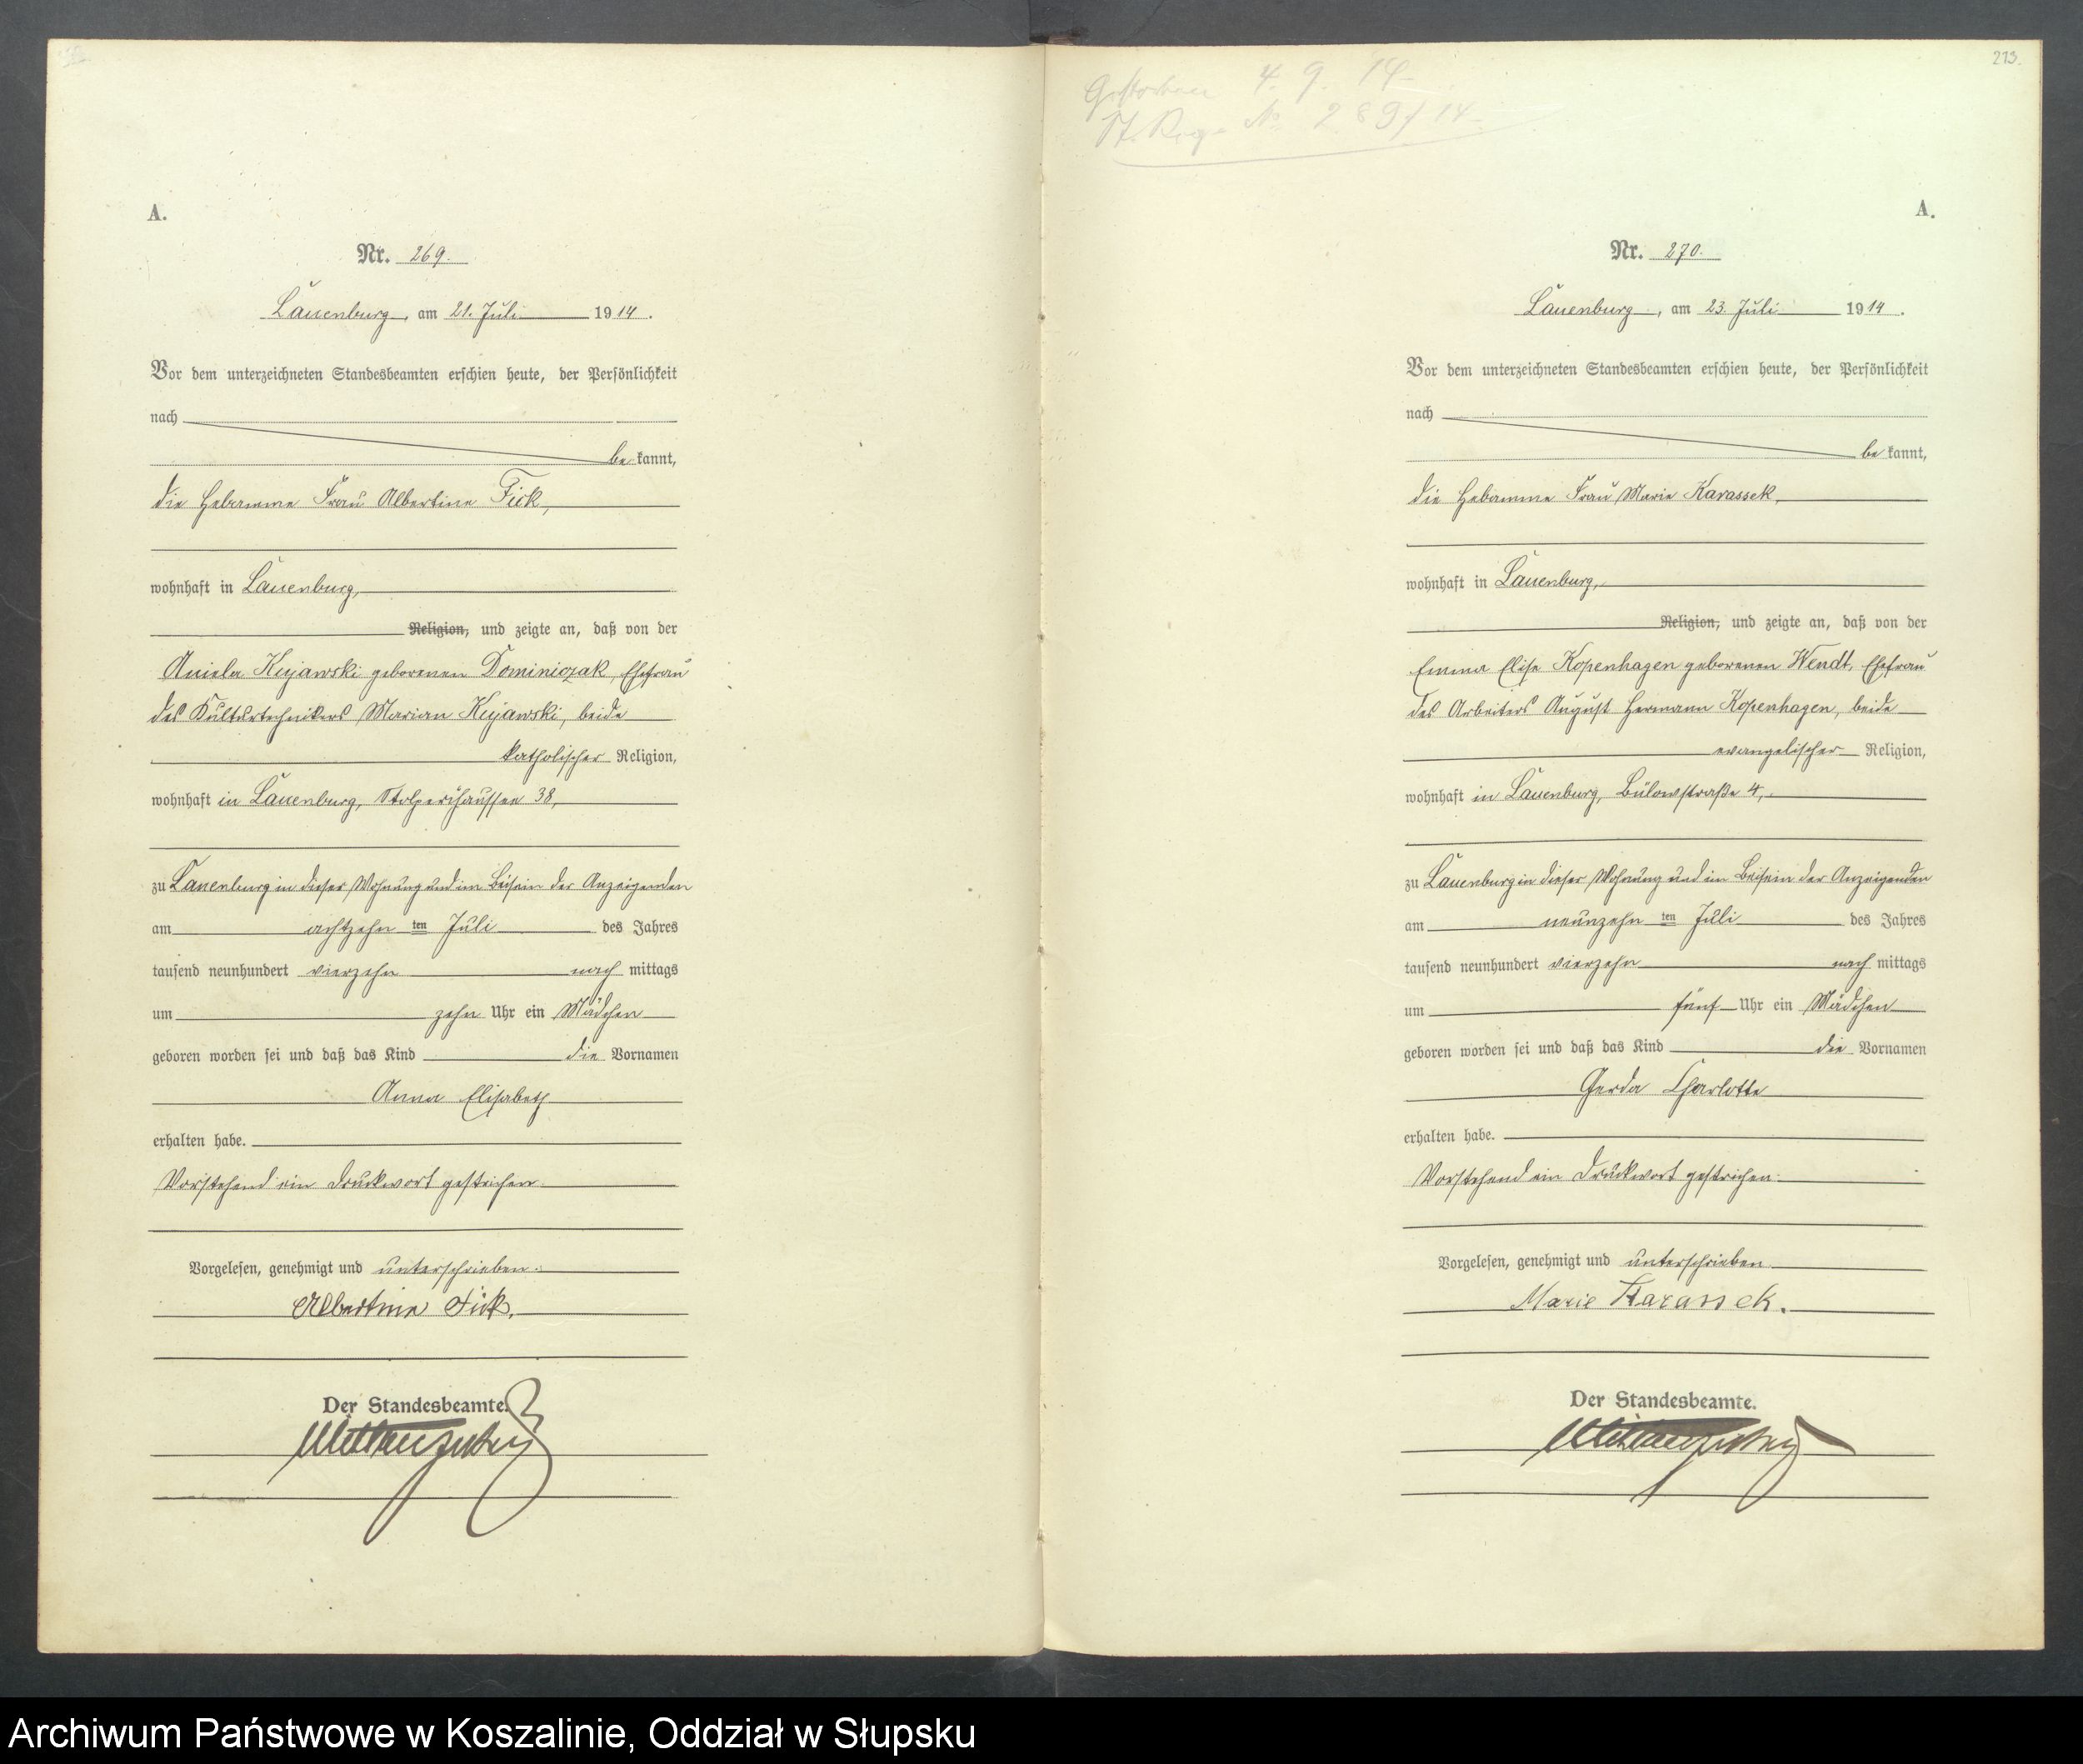 A.
Nr. 269.
Lauenburg, am 21. Juli 1914.
Vor dem unterzeichneten Standesbeamten erschien heute, der Persönlichkeit
nach
be kannt,
die Hebamme Frau Albertine Fick,
wohnhaft in Lauenburg,
Religion, und zeigte an, daß von der
Aniela Kujawski geborenen Dominiczak, Ehefrau
des Kulturtechnikers Marian Kujawski, beide
katholischer Religion,
wohnhaft in Lauenburg, Stolperchaussee 38,
zu Lauenburg in dieser Wohnung und im Beisein der Anzeigenden
am achtzehn ten Juli des Jahres
tausend neunhundert vierzehn nach mittags
um zehn Uhr ein Mädchen
geboren worden sei und daß das Kind die Vornamen
Anna Elisabeth
erhalten habe.
Vorstehend ein Druckwort gestrichen.
Vorgelesen, genehmigt und unterschrieben.
Albertine Fick.
Der Standesbeamte.
213.
Gestorben 4. 9. 14
St. Reg. No 289/14
A.
Nr. 270.
Lauenburg, am 23. Juli 1914.
Vor dem unterzeichneten Standesbeamten erschien heute, der Persönlichkeit
nach
be kannt,
die Hebamme Frau Marie Karassek,
wohnhaft in Lauenburg,
Religion, und zeigte an, daß von der
Emma Elise Kopenhagen geborenen Wendt, Ehefrau
des Arbeiters August Hermann Kopenhagen, beide
evangelischer Religion,
wohnhaft in Lauenburg, Bülowstraße 4,
zu Lauenburg in dieser Wohnung und im Beisein der Anzeigenden
am neunzehn ten Juli des Jahres
tausend neunhundert vierzehn nach mittags
um fünf Uhr ein Mädchen
geboren worden sei und daß das Kind die Vornamen
Gerda Charlotte
erhalten habe.
Vorstehend ein Druckwort gestrichen.
Vorgelesen, genehmigt und unterschrieben.
Marie Karassek.
Der Standesbeamte.
Archiwum Państwowe w Koszalinie, Oddział w Słupsku